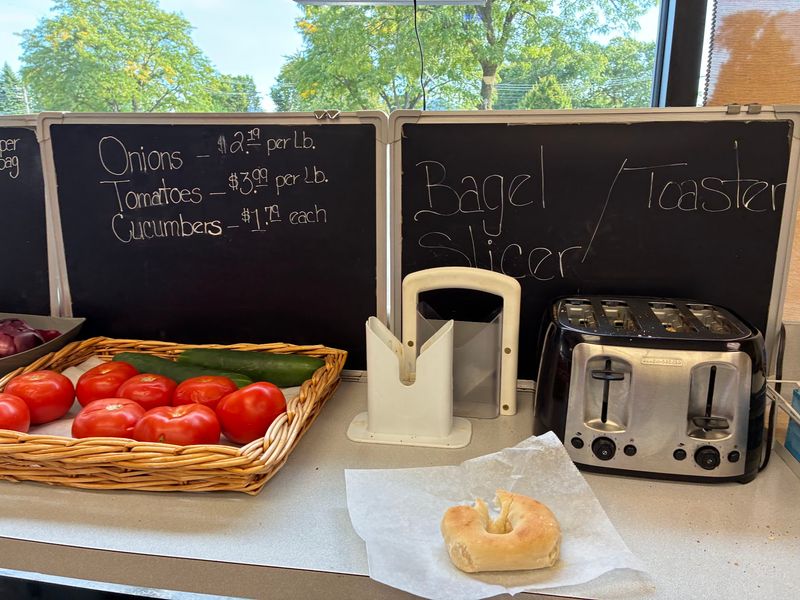 per
bag
Onions - $2.19 per Lb.
Tomatoes - $3.99 per Lb.
Cucumbers - $1.79 each
Bagel / Toaster
Slicer